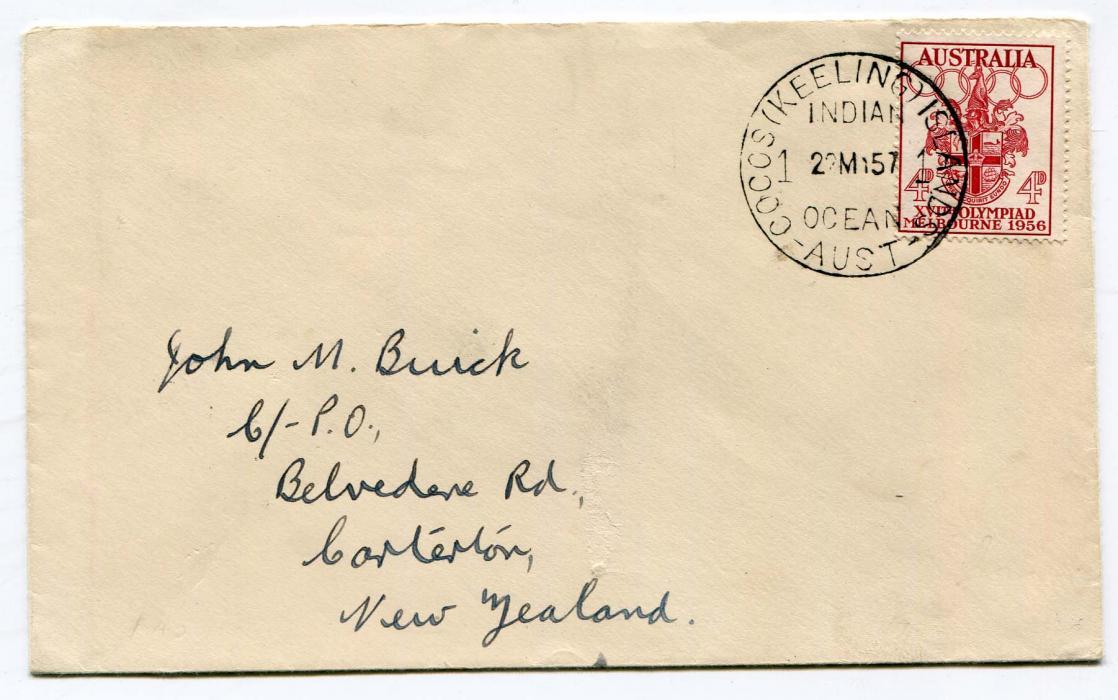 AUSTRALIA
4D 4D
XVITH OLYMPIAD
MELBOURNE 1956
COCOS (KEELING) ISLANDS
INDIAN
1 1
OCEAN
-AUST-
John M. Buick
C/- P.O.,
Belvedere Rd.,
Carterton,
New Zealand.